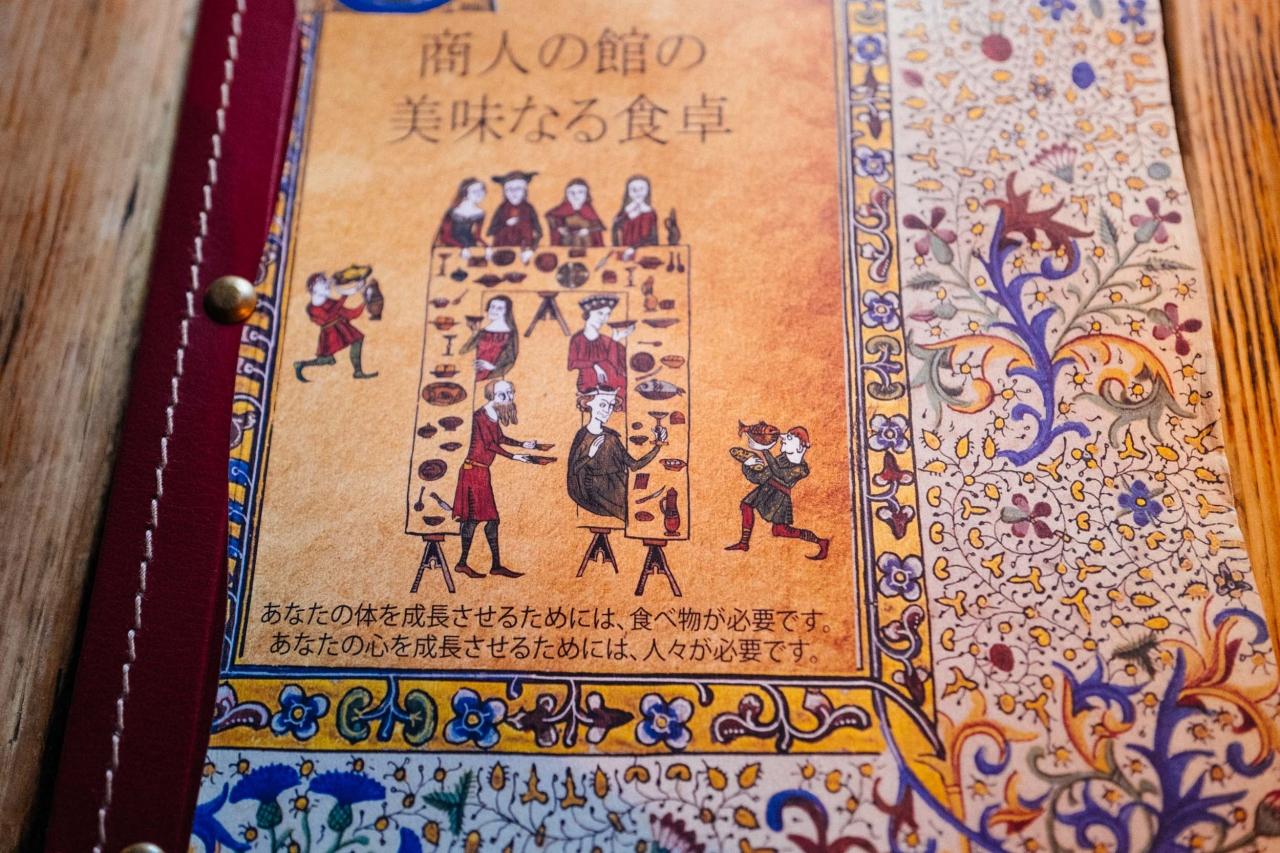 商人の館の
美味なる食卓
あなたの体を成長させるためには、食べ物が必要です。
あなたの心を成長させるためには、人々が必要です。